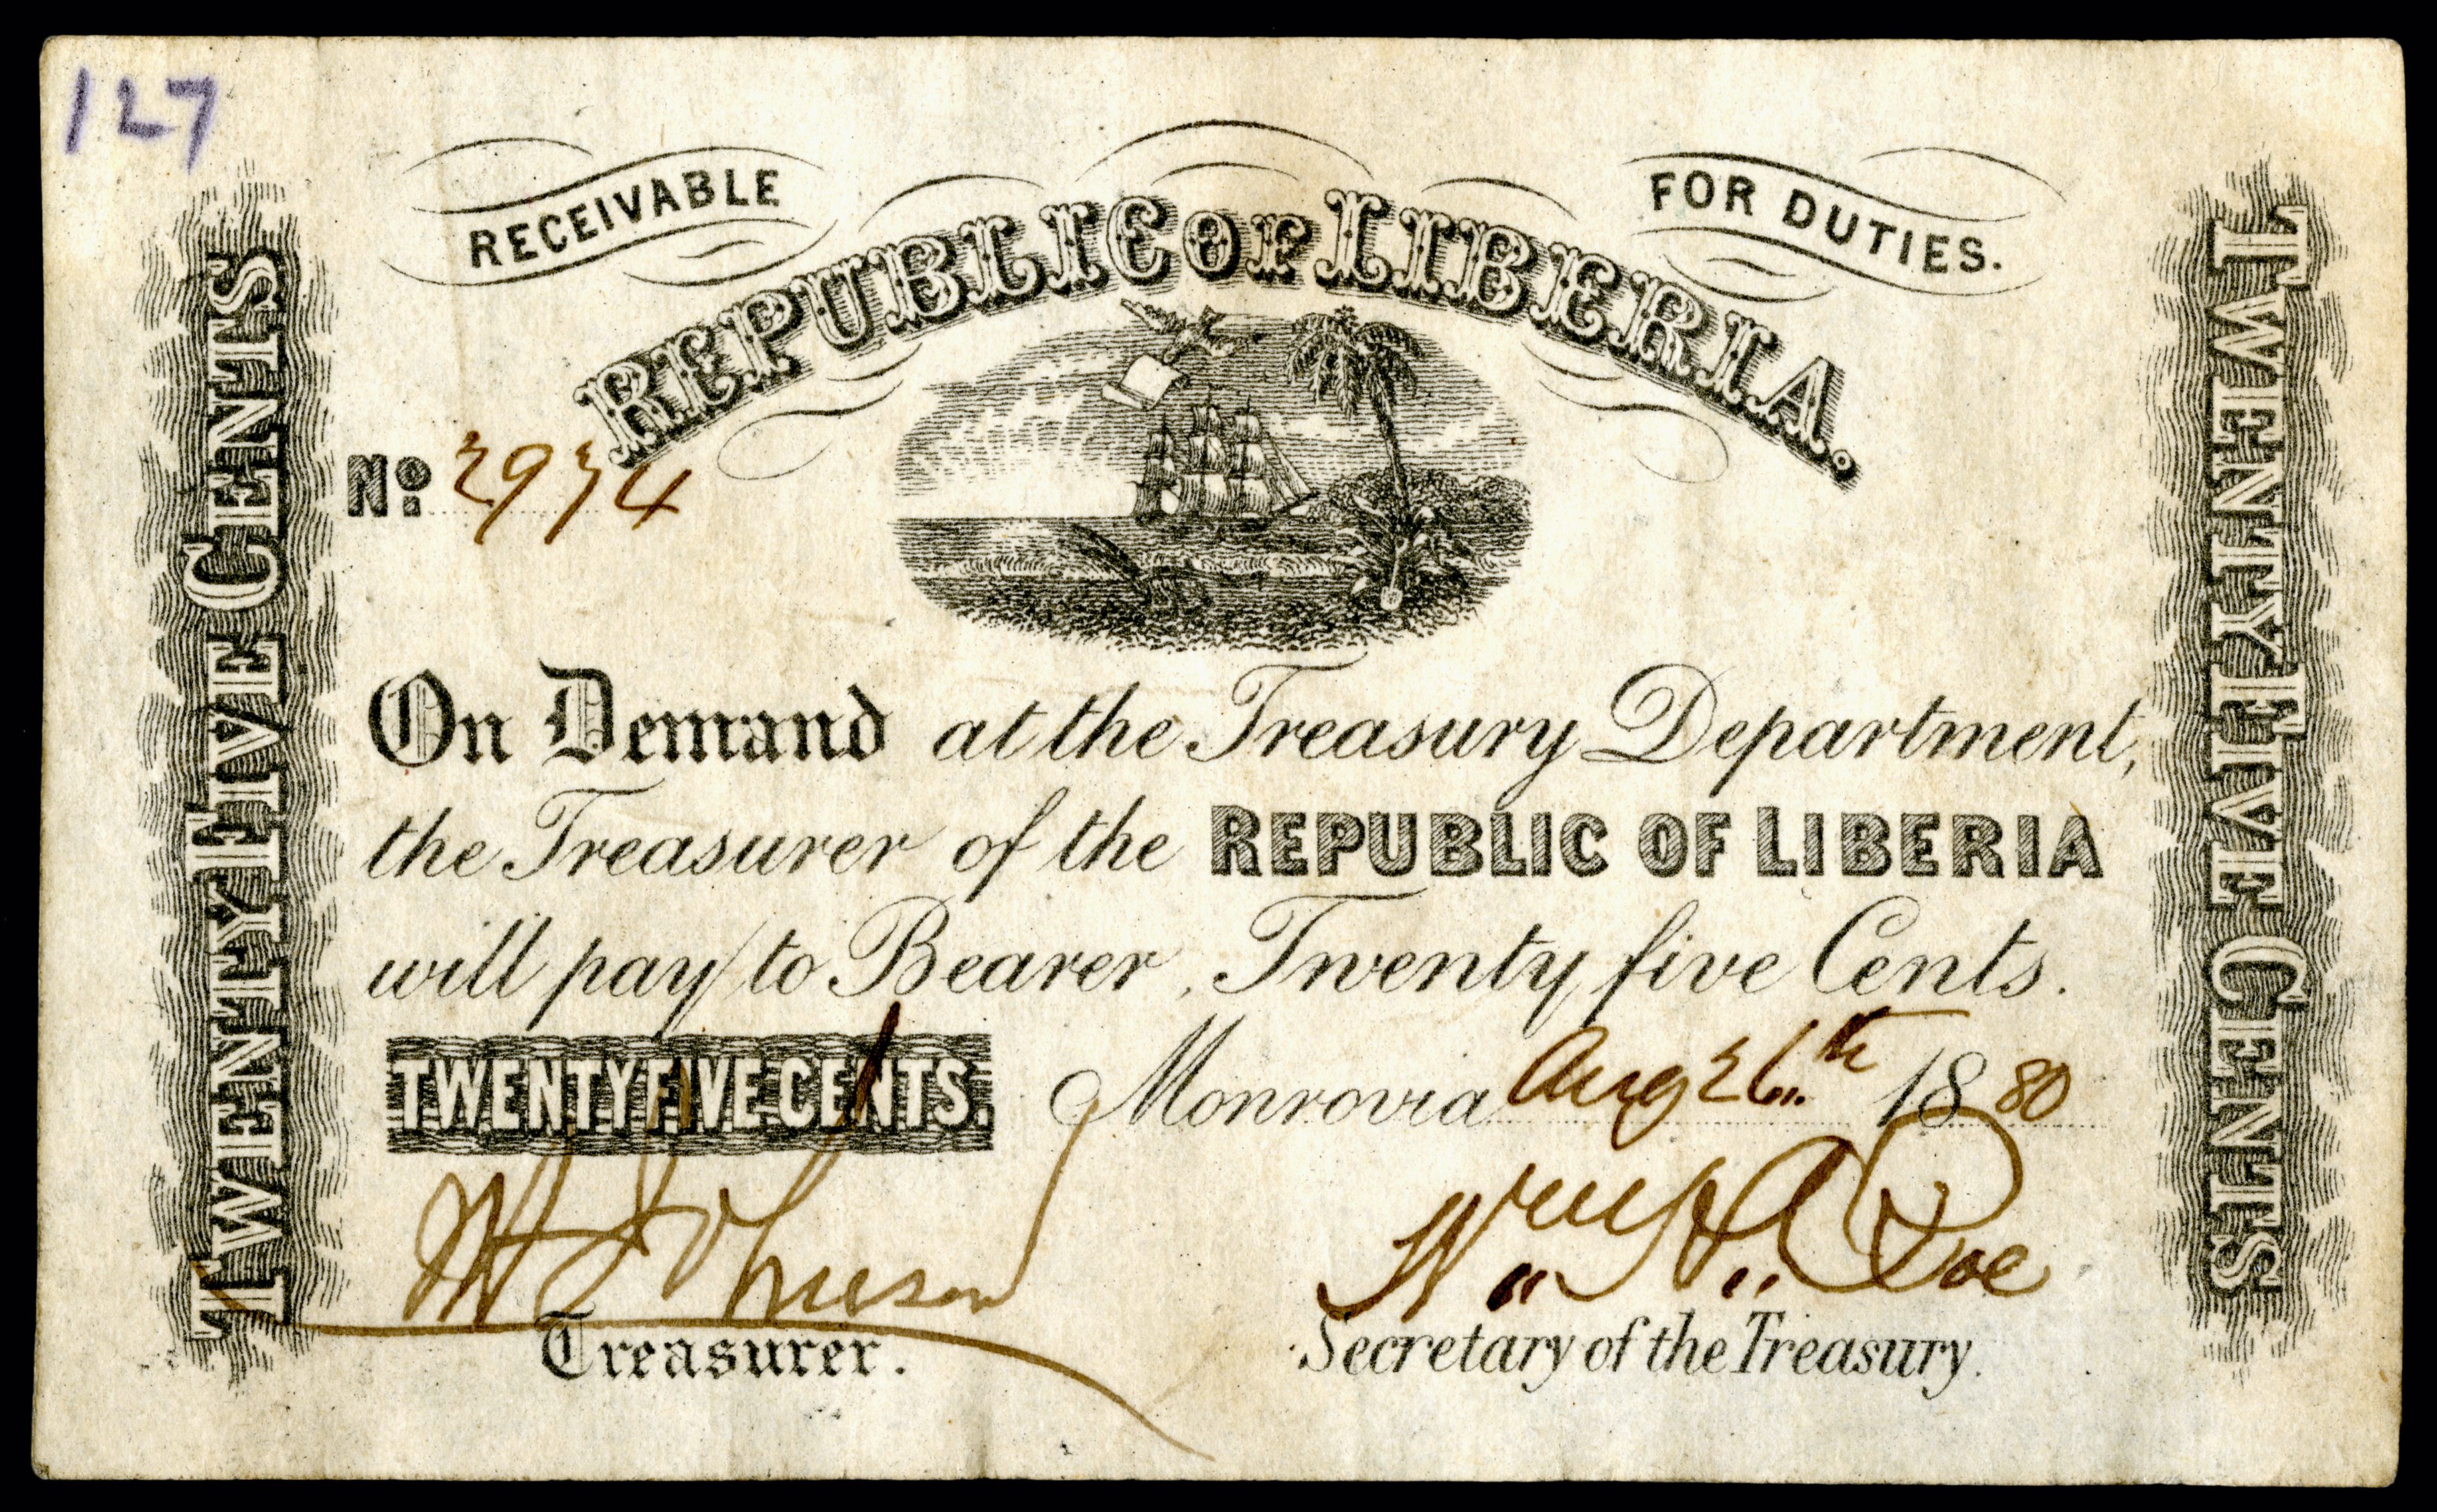 127
RECEIVABLE
FOR DUTIES.
REPUBLIC OF LIBERIA.
No. 2974
On Demand at the Treasury Department,
the Treasurer of the REPUBLIC OF LIBERIA
will pay to Bearer, Twenty five Cents.
TWENTY FIVE CENTS. Monrovia Aug 26th 1880
Wm H. A. Poe
Treasurer.
Secretary of the Treasury.
TWENTY FIVE CENTS
TWENTY FIVE CENTS